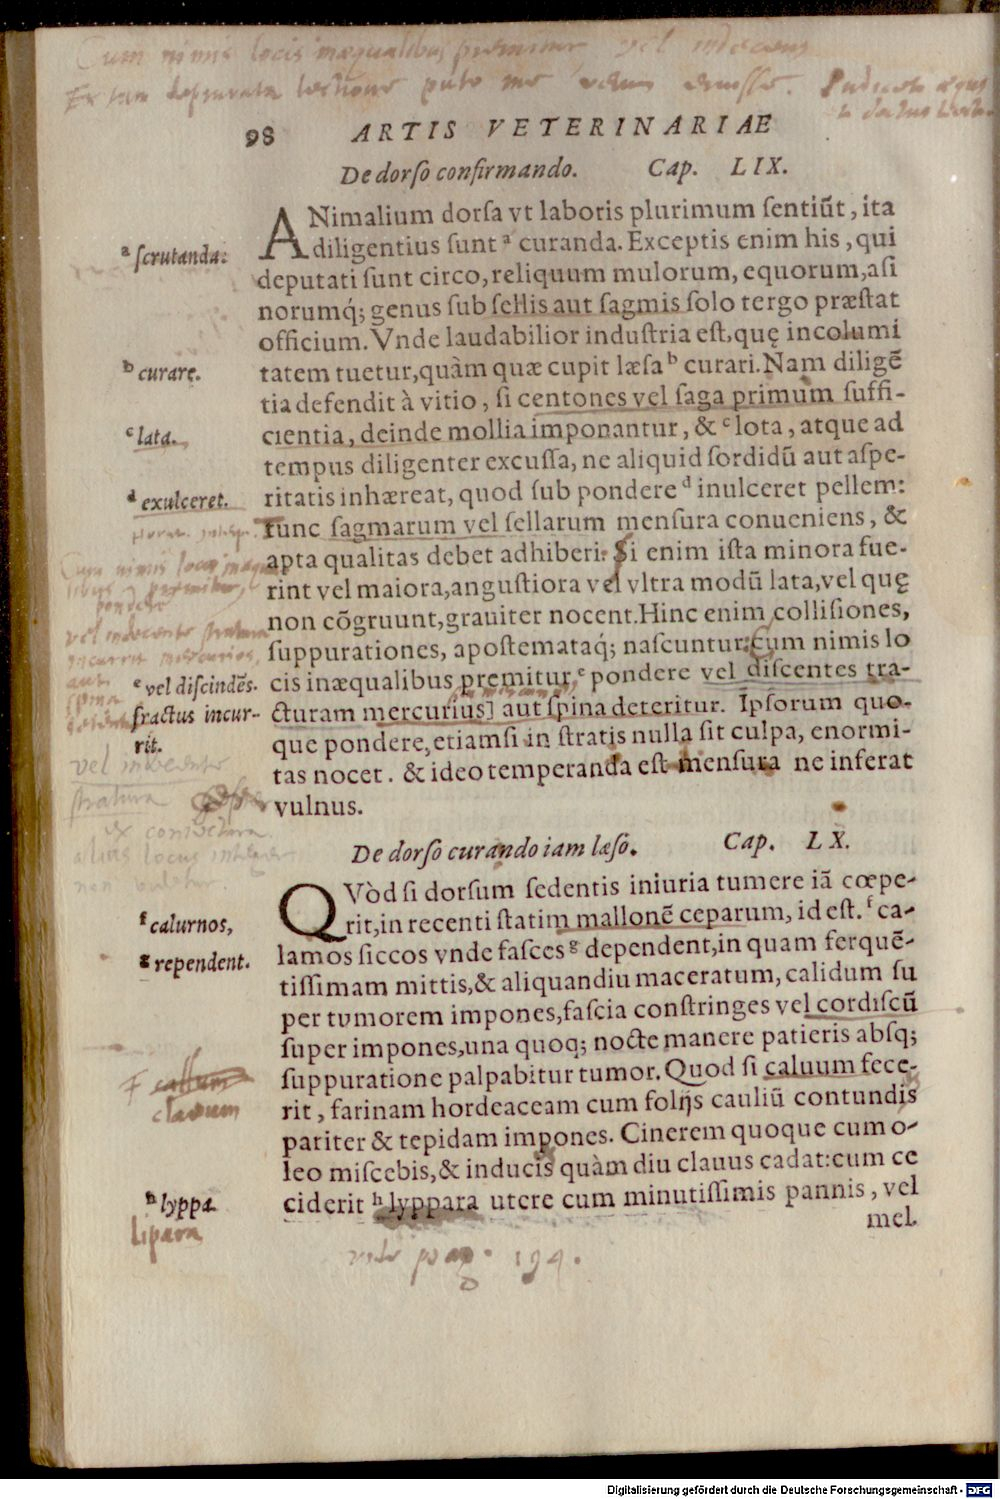 Cum nimis locis inæqualibus premitur, vel indecens
Ex tam deprauata lectione puto me verum
98 ARTIS VETERINARIAE
De dorso confirmando. Cap. LIX.
ANimalium dorsa vt laboris plurimum sentiũt, ita
diligentius sunt ᵃ curanda. Exceptis enim his, qui
ᵃ scrutanda:
deputati sunt circo, reliquum mulorum, equorum, asi
norumq́; genus sub sellis aut sagmis solo tergo præstat
officium. Vnde laudabilior industria est, quę incolumi
tatem tuetur, quàm quæ cupit læsa ᵇ curari. Nam diligẽ
ᵇ curare.
tia defendit à vitio, si centones vel saga primum suffi-
cientia, deinde mollia imponantur, & ᶜ lota, atque ad
ᶜ lata.
tempus diligenter excussa, ne aliquid sordidũ aut aspe-
ritatis inhæreat, quod sub pondere ᵈ inulceret pellem:
ᵈ exulceret.
tunc sagmarum vel sellarum mensura conueniens, &
apta qualitas debet adhiberi. Si enim ista minora fue-
rint vel maiora, angustiora vel vltra modũ lata, vel quę
non cõgruunt, grauiter nocent. Hinc enim collisiones,
suppurationes, apostemataq́; nascuntur: Cum nimis lo
cis inæqualibus premitur, ᵉ pondere vel discentes tra-
ᵉ vel discindẽs.
fractus incur-
rit.
cturam mercurius] aut spina deteritur. Ipsorum quo-
que pondere, etiamsi in stratis nulla sit culpa, enormi-
tas nocet. & ideo temperanda est mensura ne inferat
vulnus.
Cum nimis locis inæqua
libus premitur,
pondere
vel indecente stratura
incurrit mercurios,
aut
spina
vel indecente
stratura
ex coniectura
alius locus
De dorso curando iam læso. Cap. LX.
QVòd si dorsum sedentis iniuria tumere iã cœpe-
rit, in recenti statim mallonẽ ceparum, id est. ᶠ ca-
ᶠ calurnos,
lamos siccos vnde fasces ᵍ dependent, in quam ferquẽ-
ᵍ rependent.
tissimam mittis, & aliquandiu maceratum, calidum su
per tumorem impones, fascia constringes vel cordiscũ
super impones, una quoq; nocte manere patieris absq;
suppuratione palpabitur tumor. Quod si caluum fece-
F callum
clauum
rit, farinam hordeaceam cum folijs cauliũ contundis
pariter & tepidam impones. Cinerem quoque cum o-
leo miscebis, & inducis quàm diu clauus cadat: cum ce
ciderit ʰ lyppara utere cum minutissimis pannis, vel
ʰ lyppa.
lipara
mel
vide pag. 194.
Digitalisierung gefördert durch die Deutsche Forschungsgemeinschaft - DFG